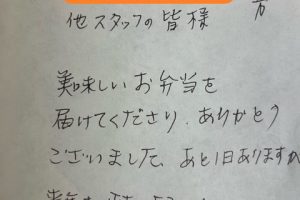 方
他スタッフの皆様
美味しいお弁当を
届けてくださり、ありがとう
ございました。あと1日ありますが